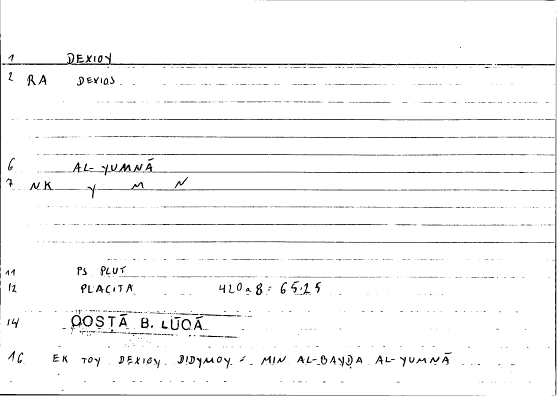 1 DEXIOY
2 RA DEXIOS
6 AL-YUMNĀ
7 NK Y M N
11 PS PLUT
12 PLACITA 420a8 : 65.25
14 QOSṬĀ B. LŪQĀ
16 EK TOY DEXIOY DIDYMOY = MIN AL-BAYḌA AL-YUMNĀ